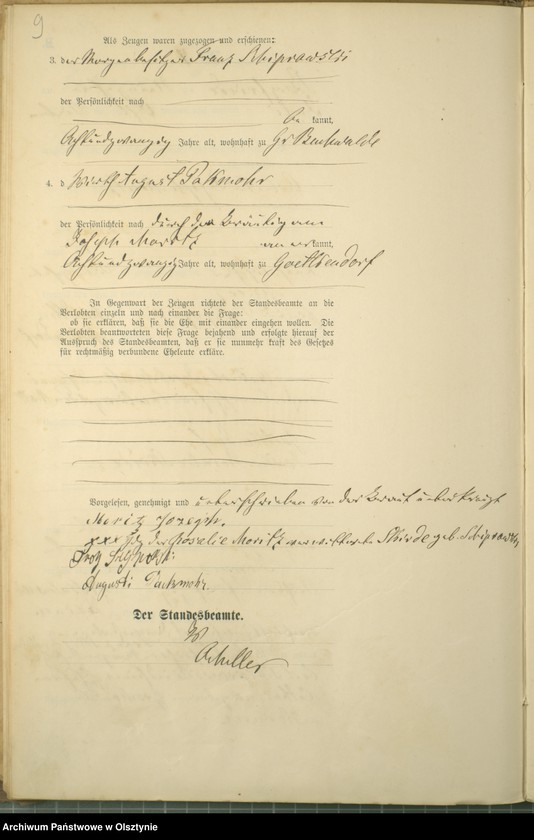 9
Als Zeugen waren zugezogen und erschienen:
3. der Morgenbesitzer Franz Schiprowski
der Persönlichkeit nach
be kannt,
Achtundzwanzig Jahre alt, wohnhaft zu Gr Buchwalde
4. d Wirth August Palkmohr
der Persönlichkeit nach durch den Bräutigam
Joseph Moritz anerkannt,
Achtundzwanzig Jahre alt, wohnhaft zu Goettkendorf
In Gegenwart der Zeugen richtete der Standesbeamte an die
Verlobten einzeln und nach einander die Frage:
ob sie erklären, daß sie die Ehe mit einander eingehen wollen. Die
Verlobten beantworteten diese Frage bejahend und erfolgte hierauf der
Ausspruch des Standesbeamten, daß er sie nunmehr kraft des Gesetzes
für rechtmäßig verbundene Eheleute erkläre.
Vorgelesen, genehmigt und unterschrieben von der Braut unterkreuzt
Moritz Joseph.
xxx der Rosalie Moritz verwittwete geb. Schiprowski
Augusti
Der Standesbeamte.
Archiwum Państwowe w Olsztynie